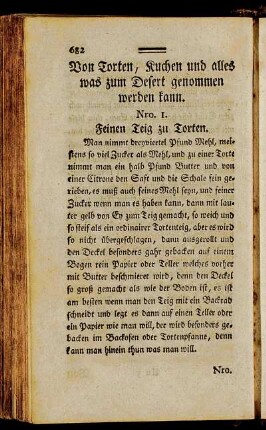 682
Von Torten, Kuchen und alles
was zum Desert genommen
werden kann.
Nro. 1.
Feinen Teig zu Torten.
Man nimmt dreyviertel Pfund Mehl, mei-
stens so viel Zucker als Mehl, und zu einer Torte
nimmt man ein halb Pfund Butter und von
einer Citrons den Saft und die Schale fein ge-
rieben, es muß auch feines Mehl seyn, und feiner
Zucker wenn man es haben kann, dann mit lau-
ter gelb von Ey zum Teig gemacht, so weich und
so steif als ein ordinairer Tortenteig, aber es wird
so nicht übergeschlagen, dann ausgerollt und
den Deckel besonders gahr gebacken auf einem
Bogen rein Papier oder Teller welches vorher
mit Butter beschmieret wird, denn den Deckel
so groß gemacht als wie der Boden ist, es ist
am besten wenn man den Teig mit ein Backrad
schneidt und legt es dann auf einen Teller oder
ein Papier wie man will, der wird besonders ge-
backen im Backofen oder Tortenpfanne, denn
kann man hinein thun was man will.
Nro.